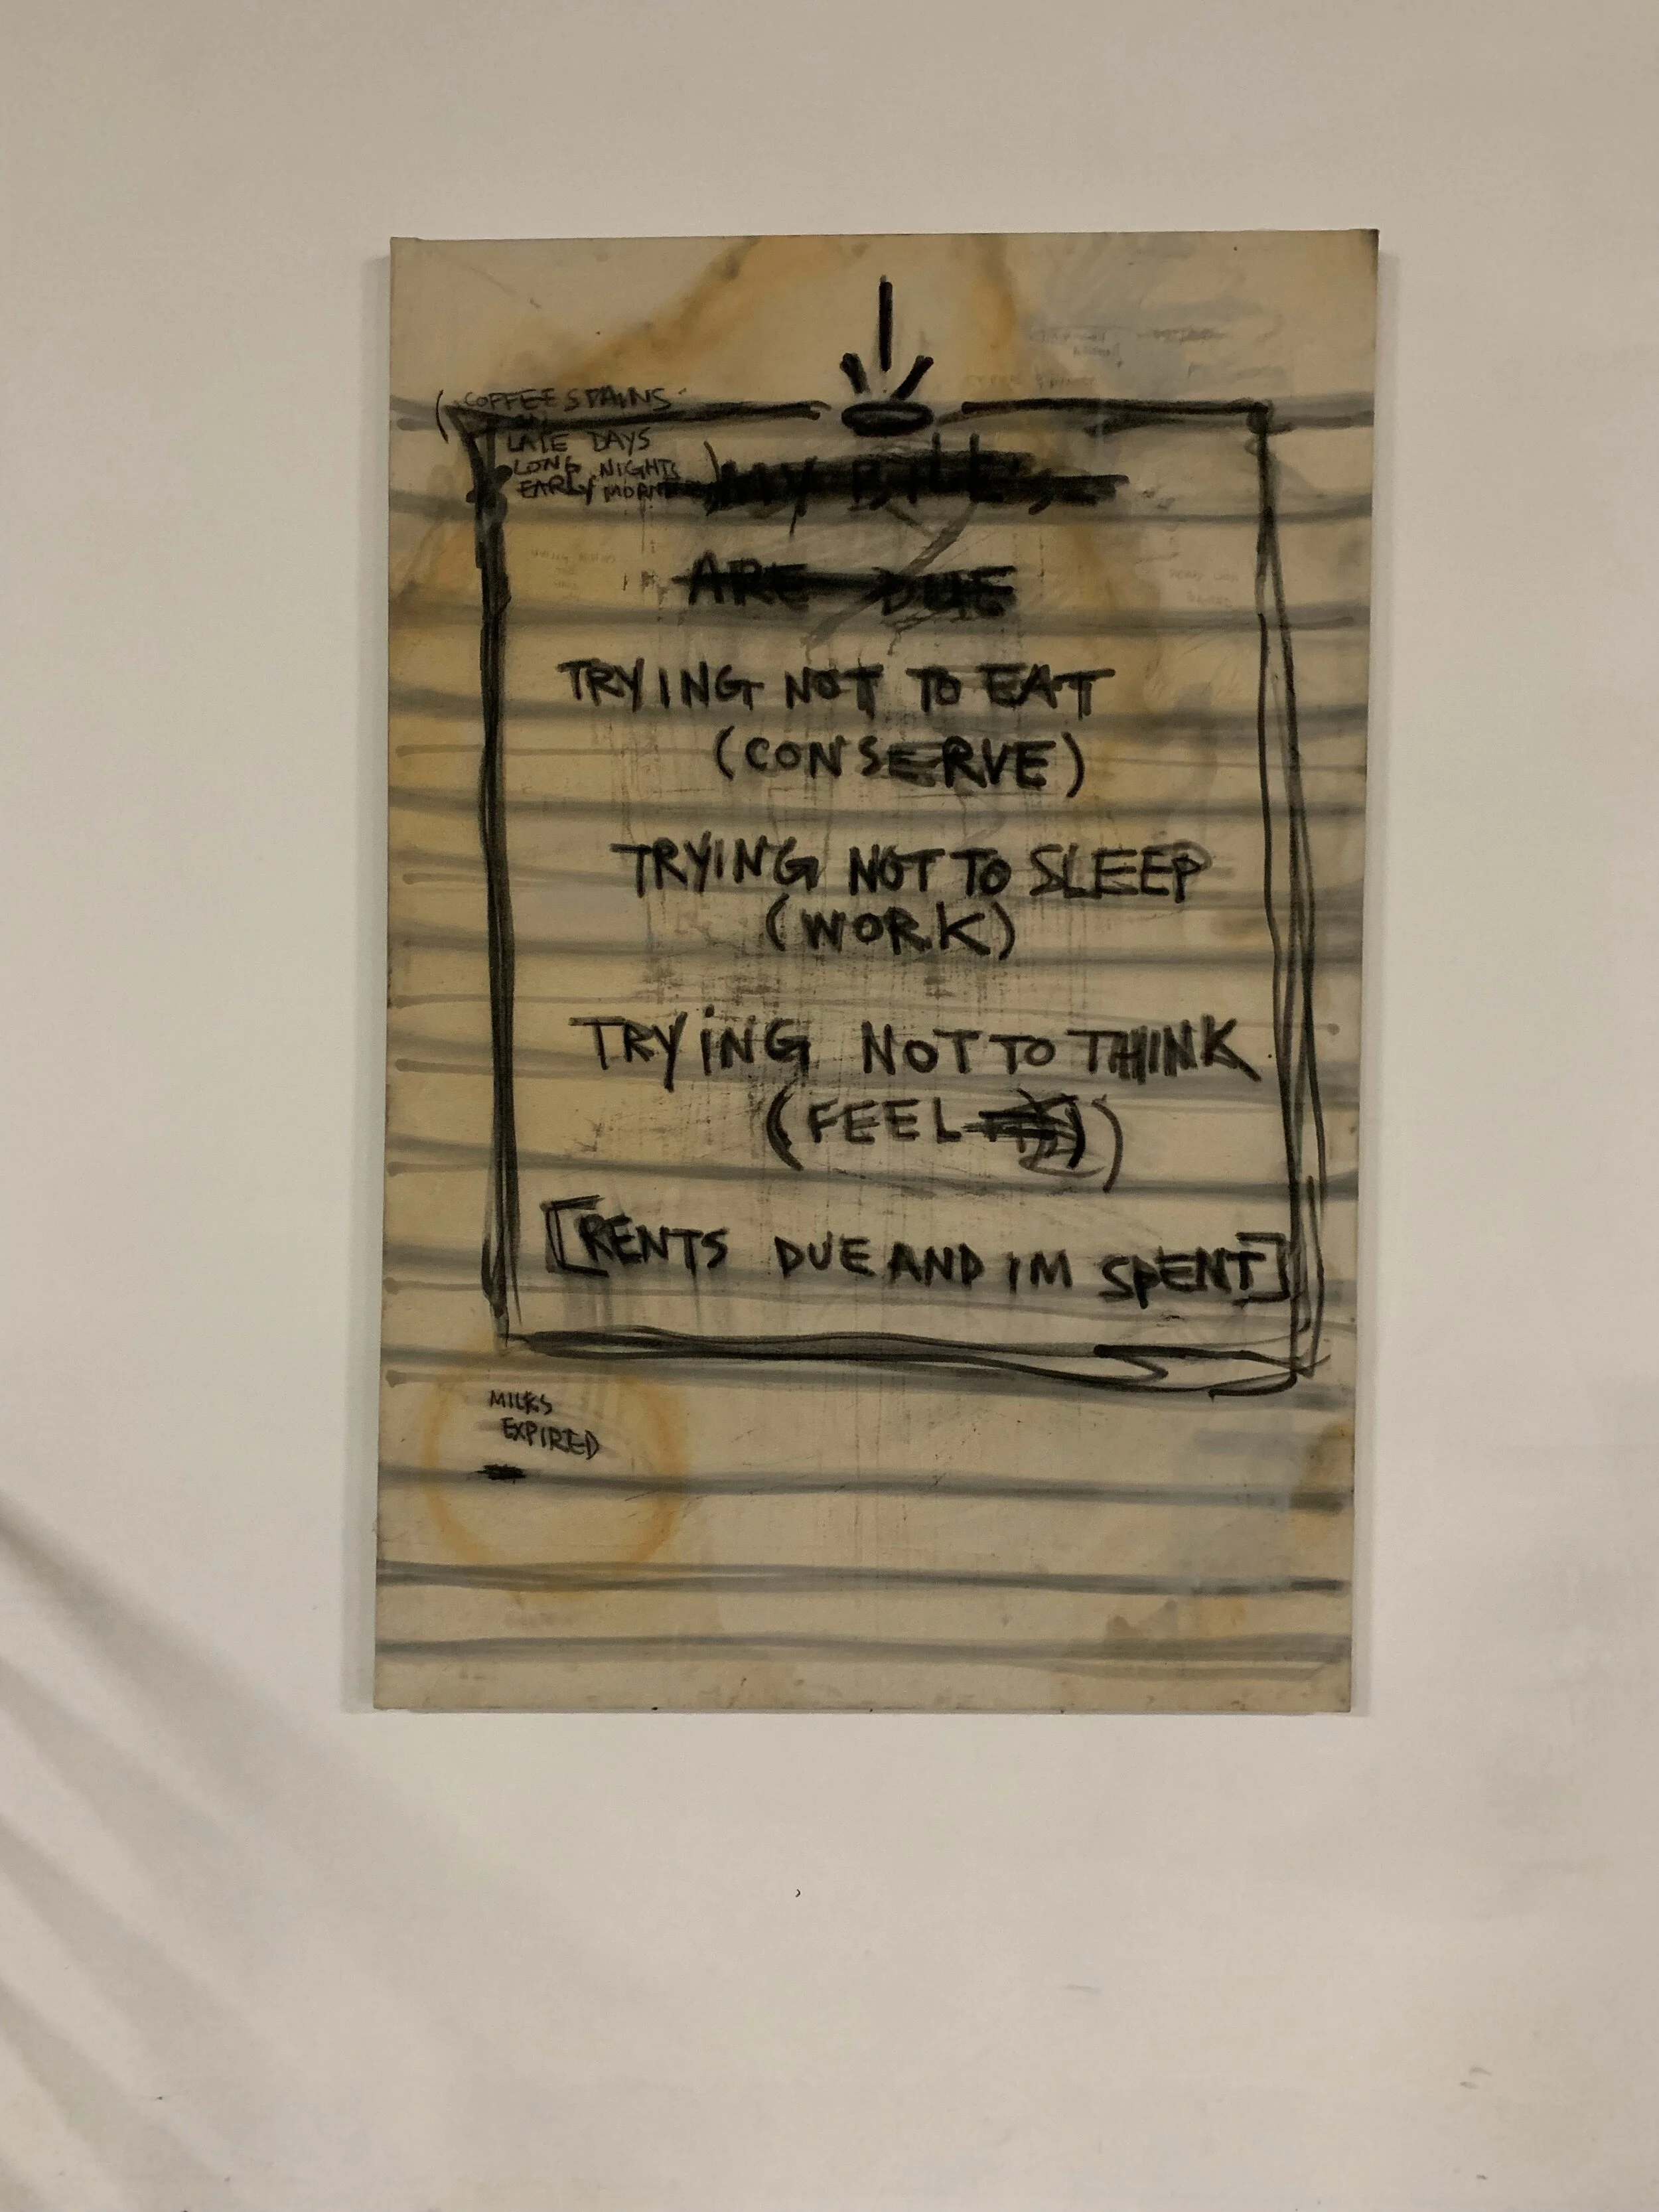 (COFFEE STAINS
LATE DAYS
LONG NIGHTS
EARLY MORNS)
MY BILLS
ARE DUE
TRYING NOT TO EAT
(CONSERVE)
TRYING NOT TO SLEEP
(WORK)
TRYING NOT TO THINK
(FEEL)
[RENTS DUE AND IM SPENT]
MILKS
EXPIRED